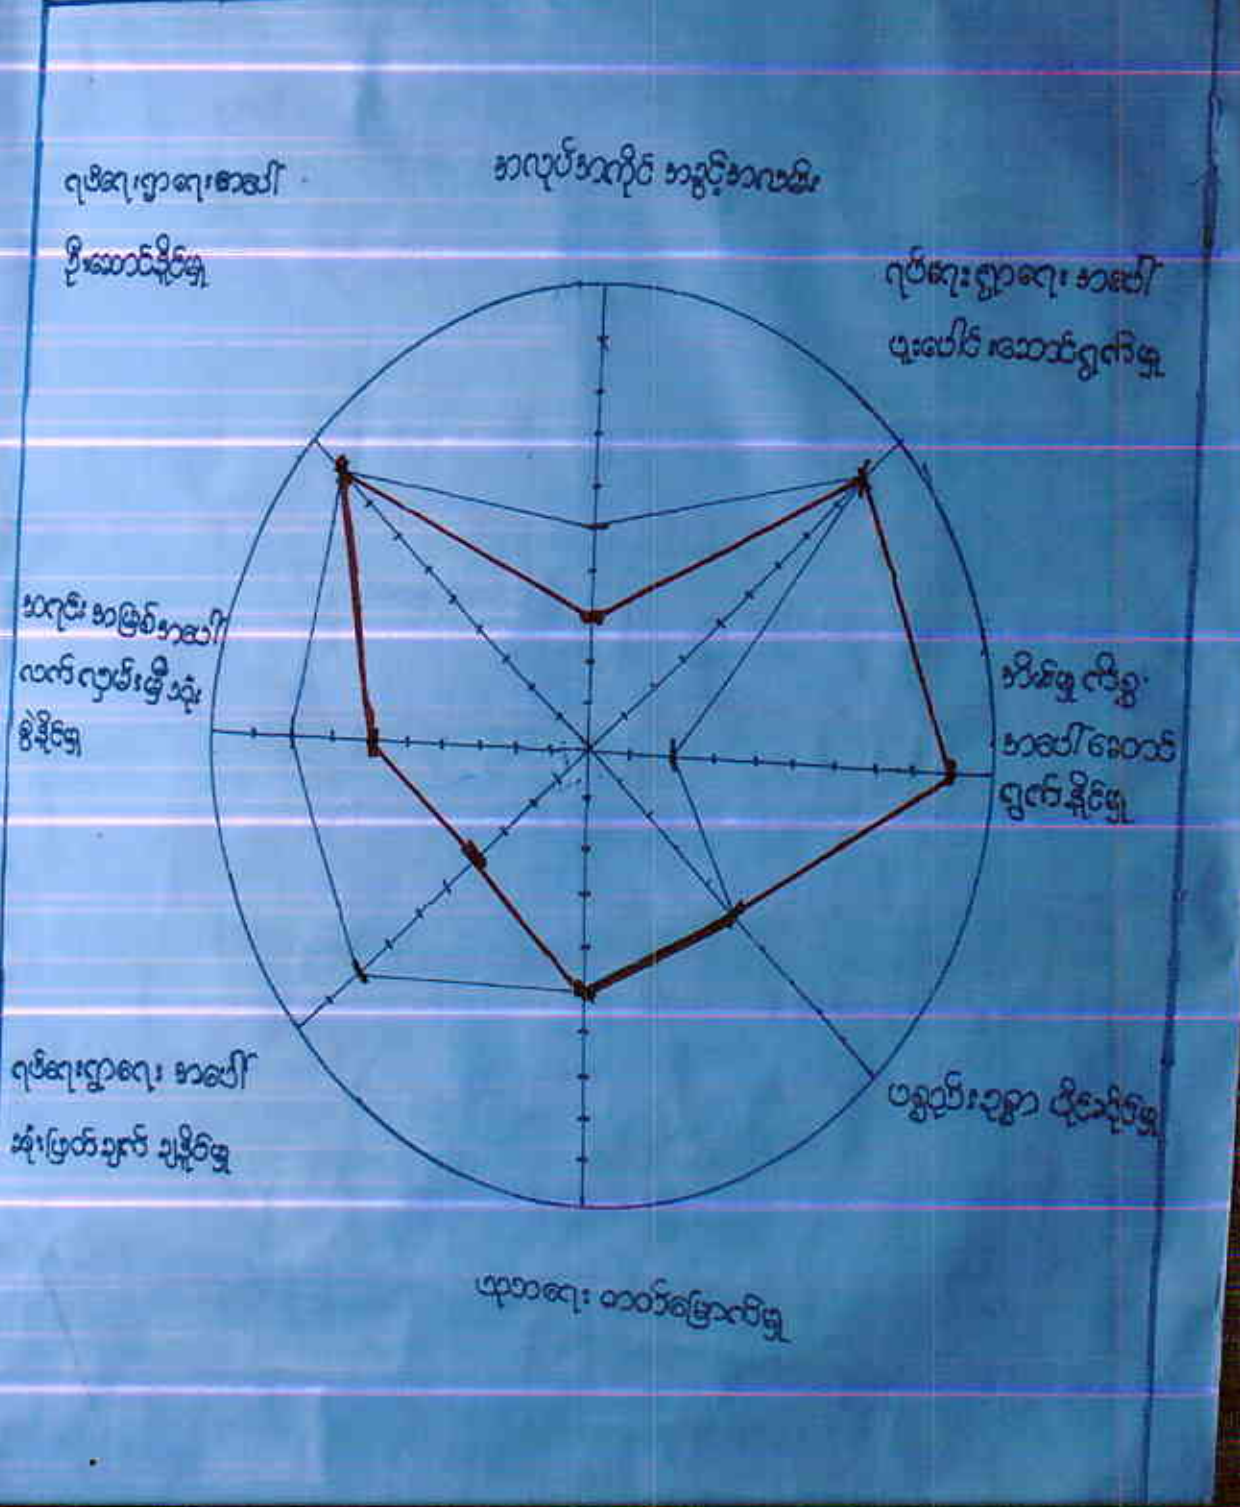 ရပ်ရေးရွာရေးအပေါ်
ဦးဆောင်နိုင်မှု
အလုပ်အကိုင် အခွင့်အလမ်း
ရပ်ရေးရွာရေး အပေါ်
ပူးပေါင်းဆောင်ရွက်မှု
အရင်းအမြစ်အပေါ်
လက်လှမ်းမှီသုံး
စွဲနိုင်မှု
အိမ်မှုကိစ္စ
အပေါ် ဆောင်
ရွက်နိုင်မှု
ရပ်ရေးရွာရေး အပေါ်
ဆုံးဖြတ်ချက် ချနိုင်မှု
ပစ္စည်းဥစ္စာ ပိုင်ဆိုင်မှု
ပညာရေး တတ်မြောက်မှု